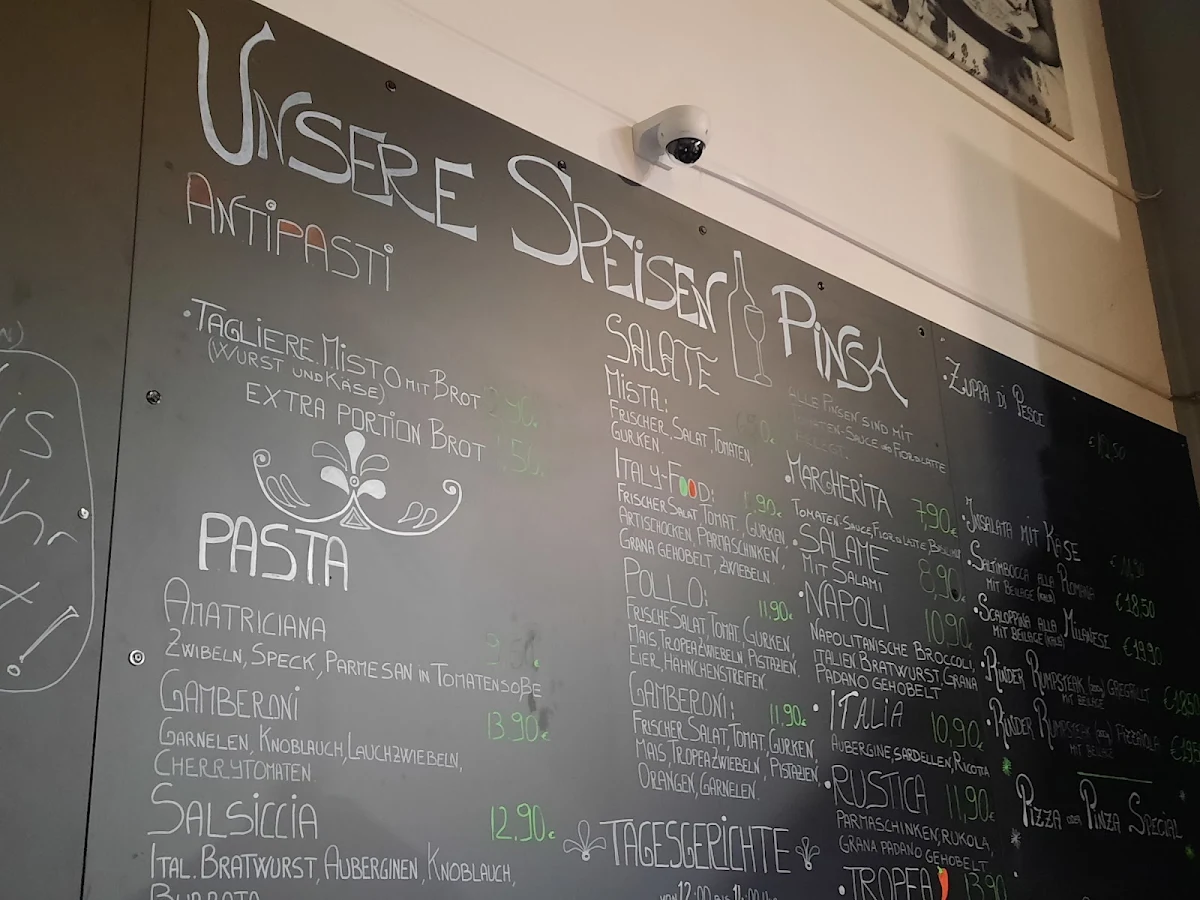 UNSERE SPEISEN
ANTIPASTI
• TAGLIERE MISTO MIT BROT
(WURST UND KÄSE)
EXTRA PORTION BROT
PASTA
AMATRICIANA
ZWIBELN, SPECK, PARMESAN IN TOMATENSOßE
GAMBERONI 13.90€
GARNELEN, KNOBLAUCH, LAUCHZWIEBELN,
CHERRYTOMATEN.
SALSICCIA 12.90€
ITAL. BRATWURST, AUBERGINEN, KNOBLAUCH,
BURRATA
SALATE
MISTA:
FRISCHER SALAT, TOMATEN,
GURKEN.
ITALY-FOOD:
FRISCHER SALAT, TOMAT. GURKEN,
ARTISCHOCKEN, PARMASCHINKEN,
GRANA GEHOBELT, ZWIEBELN.
POLLO: 11.90€
FRISCHE SALAT, TOMAT, GURKEN,
MAIS, TROPEA ZWIEBELN, PISTAZIEN,
EIER, HÄHNCHENSTREIFEN.
GAMBERONI: 11,90€
FRISCHER SALAT, TOMAT, GURKEN,
MAIS, TROPEA ZWIEBELN, PISTAZIEN,
ORANGEN, GARNELEN.
TAGESGERICHTE
VON 12:00 BIS 14:00
PINSA
ALLE PINSEN SIND MIT
TOMATEN-SAUCE UND FIOR DI LATTE
• MARGHERITA 7,90€
TOMATEN-SAUCE, FIOR DI LATTE,
• SALAME 8,90€
MIT SALAMI
• NAPOLI 10,90
NAPOLITANISCHE BROCCOLI,
ITALIEN BRATWURST, GRANA
PADANO GEHOBELT
• ITALIA 10,90€
AUBERGINE, SARDELLEN, RICOTTA
• RUSTICA 11,90€
PARMASCHINKEN, RUKOLA,
GRANA PADANO GEHOBELT
• TROPEA 13,90
• ZUPPA DI PESCE
• INSALATA MIT KÄSE
• SALTIMBOCCA ALLA ROMANA €18,50
MIT BEILAGE
• SCALOPPINA ALLA MILANESE €19,90
MIT BEILAGE
• RINDER RUMPSTEAK GEGRILLT
MIT BEILAGE
• RINDER RUMPSTEAK PIZZAIOLA
MIT BEILAGE
PIZZA ODER PINZA SPECIAL